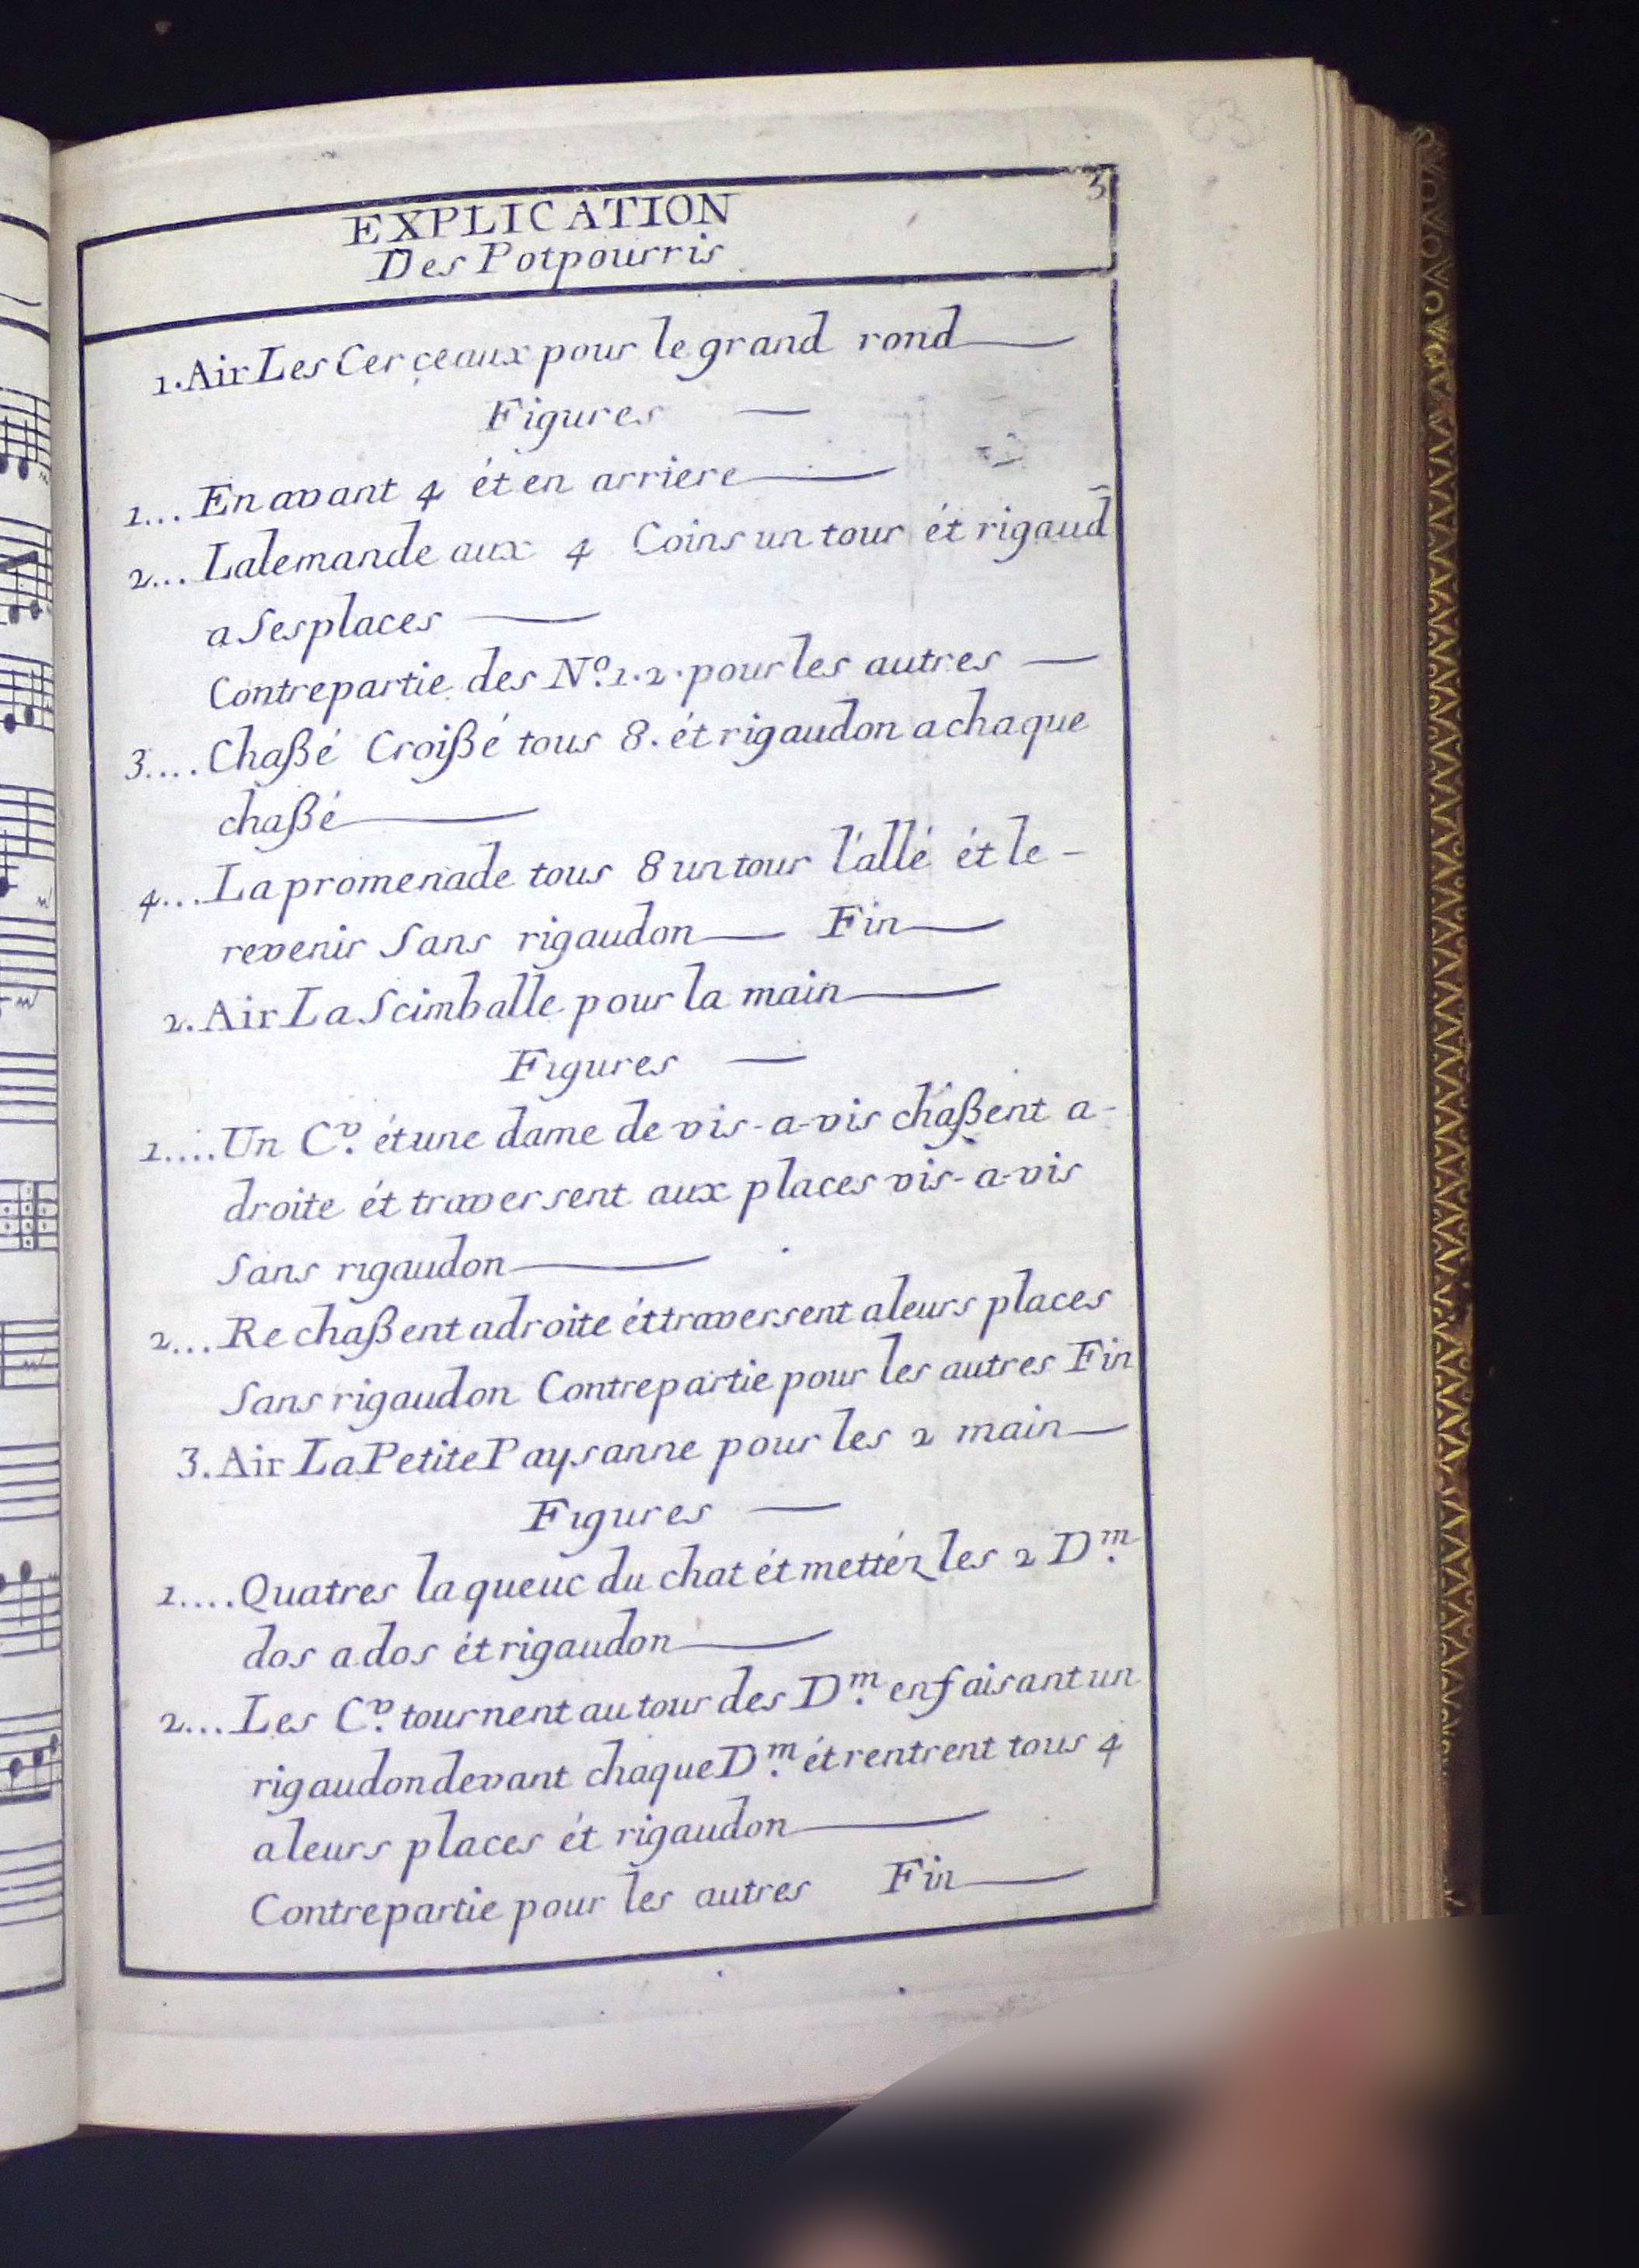 3
EXPLICATION
Des Potpourris
1. Air Les Cerçeaux pour le grand rond
Figures —
1... En avant 4 ét en arriere
2... Lalemande aux 4 Coins un tour ét rigaud̄
a Ses places —
Contrepartie des Nº. 1. 2. pour les autres —
3.... Chaßé Croißé tous 8. ét rigaudon a chaque
chaßé
4... La promenade tous 8 un tour l'allé ét le -
revenir Sans rigaudon — Fin
2. Air La Scimballe pour la main
Figures —
1.... Un Cv. ét une dame de vis-a-vis chaßent a-
droite ét traversent aux places vis-a-vis
Sans rigaudon
2... Rechaßent a droite ét traversent a leurs places
Sans rigaudon Contrepartie pour les autres Fin
3. Air La Petite Paysanne pour les 2 main
Figures —
1.... Quatres la queue du chat ét mettéz les 2 Dm.
dos a dos ét rigaudon
2... Les Cv. tournent autour des Dm. en faisant un
rigaudon devant chaque Dm. ét rentrent tous 4
a leurs places ét rigaudon
Contrepartie pour les autres Fin